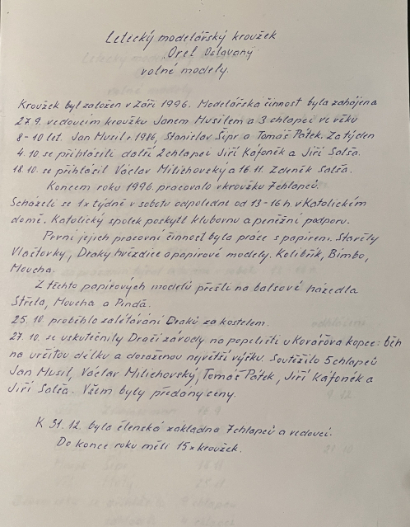 Letecký modelářský kroužek
Orel Oslavany
volné modely.
Kroužek byl založen v Září 1996. Modelářská činnost byla zahájena
27.9. vedoucím kroužku Janem Musilem a 3 chlapci ve věku
8-10 let. Jan Musil * 1986, Stanislav Šipr a Tomáš Pátek. Za týden
4.10 se přihlásili další 2 chlapci Jiří Káfoněk a Jiří Salša.
18.10. se přihlásil Václav Milichovský a 16.11. Zdeněk Salša.
Koncem roku 1996 pracovalo v kroužku 7 chlapců.
Scházeli se 1x týdně v sobotu odpoledne od 13-16 h v Katolickém
domě. Katolický spolek poskytl klubovnu a peněžní podporu.
První jejich pracovní činnost byla práce s papírem. Stavěly
Vlaštovky, Draky hvězdice a papírové modely. Kolibřík, Bimbo,
Moucha.
Z těchto papírových modelů přešli na balsové házedla
Střela, Moucha a Pinďa.
25.10. proběhlo zalétávání Draků za kostelem.
27.10. se uskutečnily Dračí závody na popelišti u Kovářova kopce: běh
na určitou délku a dosaženou největší výšku. Soutěžilo 5 chlapců
Jan Musil, Václav Milichovský, Tomáš Pátek, Jiří Káfoněk a
Jiří Salša. Všem byly předány ceny.
K 31.12. byla členská základna 7 chlapců a vedoucí.
Do konce roku měli 15x kroužek.